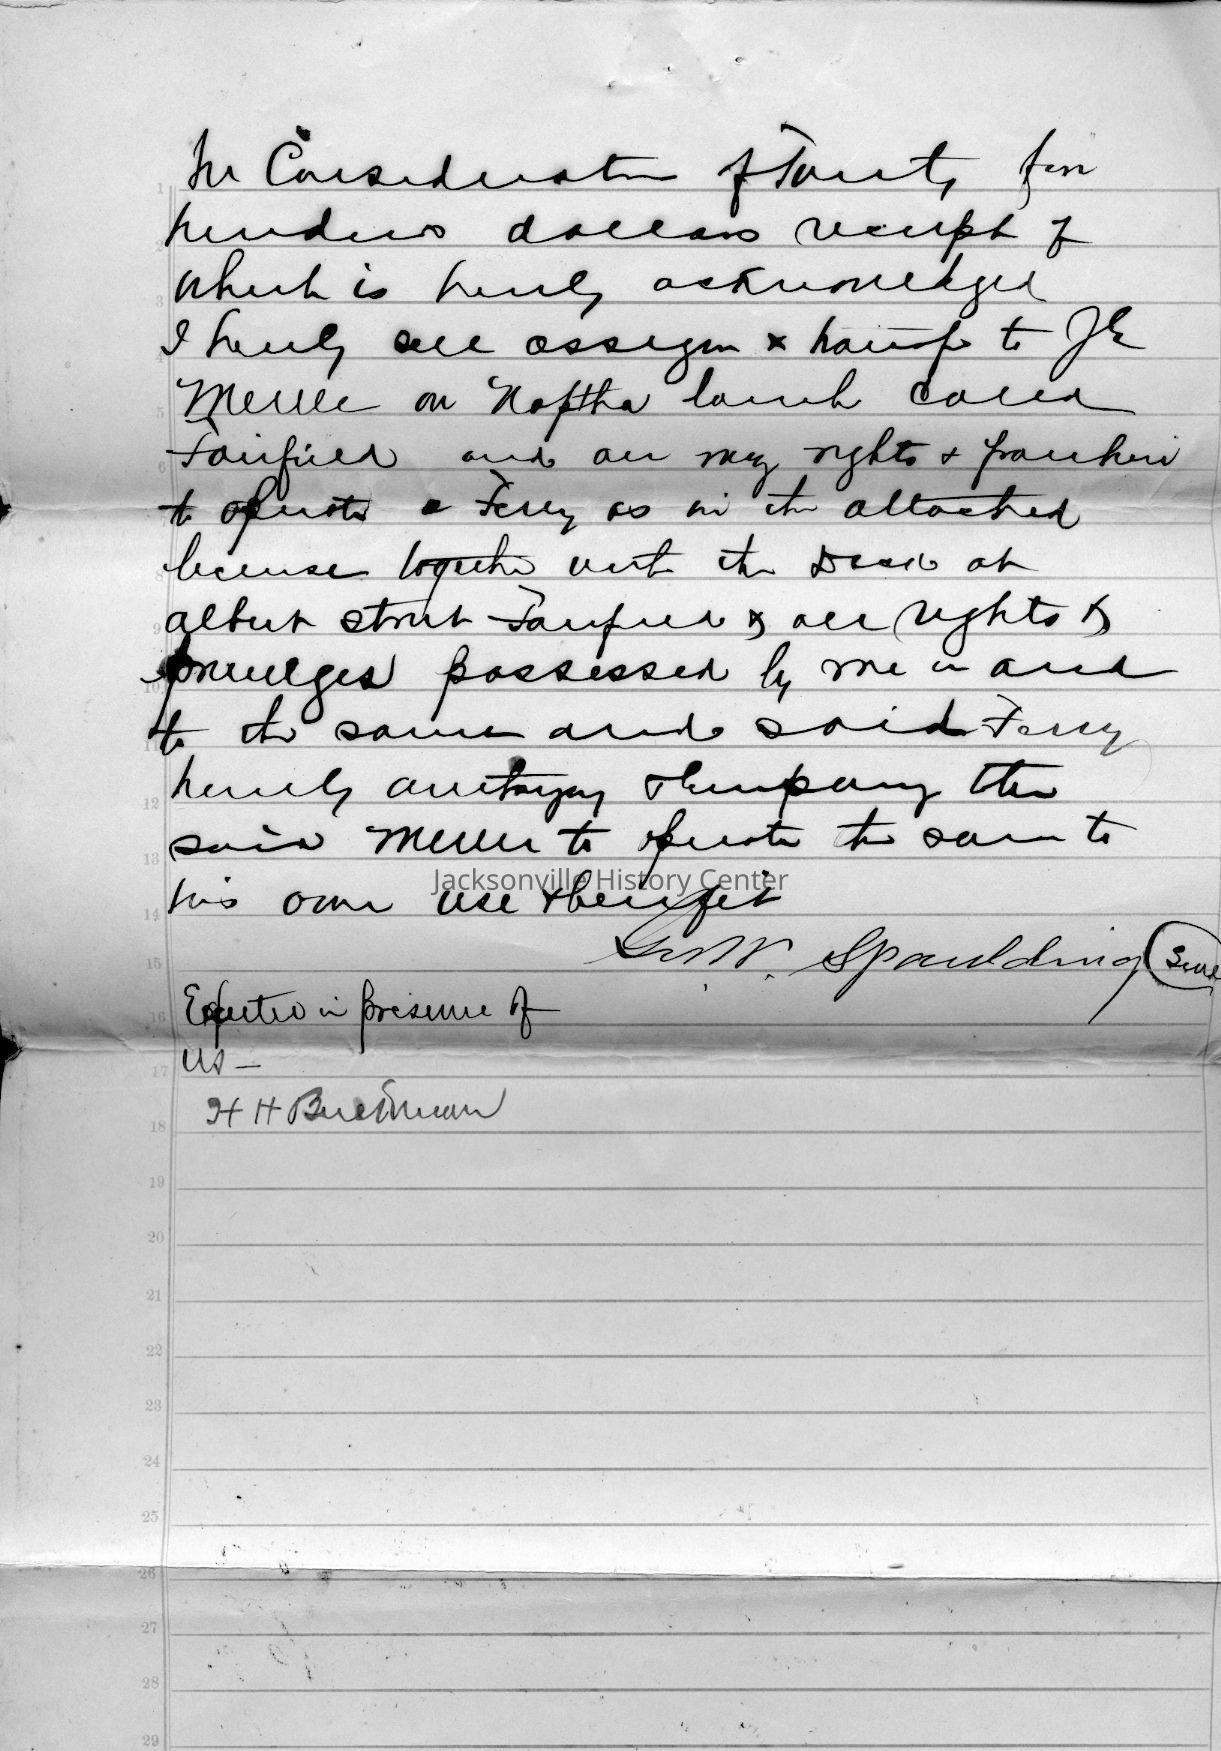 In Consideration of Twenty five
hundred dollars receipt of
which is hereby acknowledged
I hereby sell assign & transfer to J E
Merrill one Naptha launch called
Fairfield and all my rights & franchise
to operate a Ferry as in the attached
license together with the Dock at
Albert street Fairfield & all rights &
privileges possessed by me in and
to the same and said Ferry
hereby authorizing & empowering the
said Merrill to operate the same to
his own use & benefit
Jacksonville History Center
Geo W. Spaulding Seal
Executed in presence of
us —
H H Buckman
1
2
3
5
6
8
9
10
11
12
13
14
15
16
17
18
19
20
21
22
23
24
25
26
27
28
29